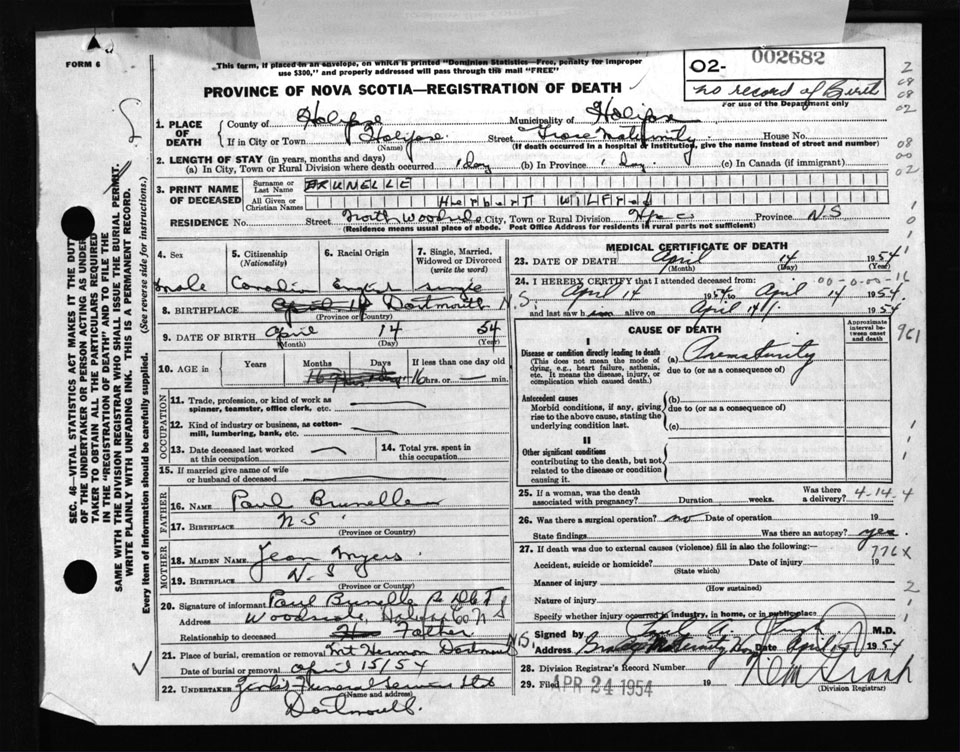 FORM 6
This form, if placed in an envelope, on which is printed "Dominion Statistics—Free, penalty for improper
use $300," and properly addressed will pass through the mail "FREE"
PROVINCE OF NOVA SCOTIA—REGISTRATION OF DEATH
02- 002682
no record of Birth
For use of the Department only
1. PLACE OF DEATH
County of Halifax Municipality of Halifax
If in City or Town Halifax Street Grace Maternity House No.
(Name) (If death occurred in a hospital or institution, give the name instead of street and number)
2. LENGTH OF STAY (in years, months and days)
(a) In City, Town or Rural Division where death occurred 1 day (b) In Province 1 day (c) In Canada (if immigrant)
3. PRINT NAME OF DECEASED
Surname or Last Name BRUNELLE
All Given or Christian Names HERBERT WILFRED
RESIDENCE No. Street North Woodside City, Town or Rural Division Hfx Co Province N.S
(Residence means usual place of abode. Post Office Address for residents in rural parts not sufficient)
4. Sex
male
5. Citizenship (Nationality)
Canadian
6. Racial Origin
English
7. Single, Married, Widowed or Divorced (write the word)
single
8. BIRTHPLACE April 14 Dartmouth N.S.
(Province or Country)
9. DATE OF BIRTH April 14 54
(Month) (Day) (Year)
10. AGE in
Years Months Days If less than one day old
16 hrs. or min.
OCCUPATION
11. Trade, profession, or kind of work as
spinner, teamster, office clerk, etc.
12. Kind of industry or business, as cotton-
mill, lumbering, bank, etc.
13. Date deceased last worked
at this occupation
14. Total yrs. spent in
this occupation
15. If married give name of wife
or husband of deceased
FATHER
16. NAME Paul Brunelle
17. BIRTHPLACE N.S
(Province or Country)
MOTHER
18. MAIDEN NAME Jean Myers
19. BIRTHPLACE N.S
(Province or Country)
20. Signature of informant Paul Brunelle
Address Woodside, Halifax Co N S
Relationship to deceased Father
21. Place of burial, cremation or removal Mt Hermon Dartmouth N.S.
Date of burial or removal April 15/54
22. UNDERTAKER Funeral Service Ltd
(Name and address)
Dartmouth.
MEDICAL CERTIFICATE OF DEATH
23. DATE OF DEATH April 14 1954
(Month) (Day) (Year)
24. I HEREBY CERTIFY that I attended deceased from:
April 14 1954 to April 14 1954
and last saw him alive on April 14 1954
CAUSE OF DEATH
Approximate interval between onset and death
I
Disease or condition directly leading to death
(This does not mean the mode of dying, e.g., heart failure, asthenia, etc. It means the disease, injury, or complication which caused death.)
(a) Prematurity
due to (or as a consequence of)
Antecedent causes
Morbid conditions, if any, giving rise to the above cause, stating the underlying condition last.
(b)
due to (or as a consequence of)
(c)
II
Other significant conditions
contributing to the death, but not related to the disease or condition causing it.
961
25. If a woman, was the death associated with pregnancy? Duration weeks. Was there a delivery? 4-14-4
26. Was there a surgical operation? no Date of operation 19
State findings Was there an autopsy? yes
776X
27. If death was due to external causes (violence) fill in also the following:—
Accident, suicide or homicide? Date of injury 19
(State which)
Manner of injury
(How sustained)
Nature of injury
Specify whether injury occurred in industry, in home, or in public place
Signed by M.D.
Address Grace Maternity Hosp Date April 1954
28. Division Registrar's Record Number
29. Filed APR 24 1954 19
(Division Registrar)
SEC. 46—VITAL STATISTICS ACT MAKES IT THE DUTY
OF THE UNDERTAKER OR PERSON ACTING AS UNDER-
TAKER TO OBTAIN ALL THE PARTICULARS REQUIRED
IN THE "REGISTRATION OF DEATH" AND TO FILE THE
SAME WITH THE DIVISION REGISTRAR WHO SHALL ISSUE THE BURIAL PERMIT.
WRITE PLAINLY WITH UNFADING INK. THIS IS A PERMANENT RECORD.
Every item of information should be carefully supplied. (See reverse side for instructions.)